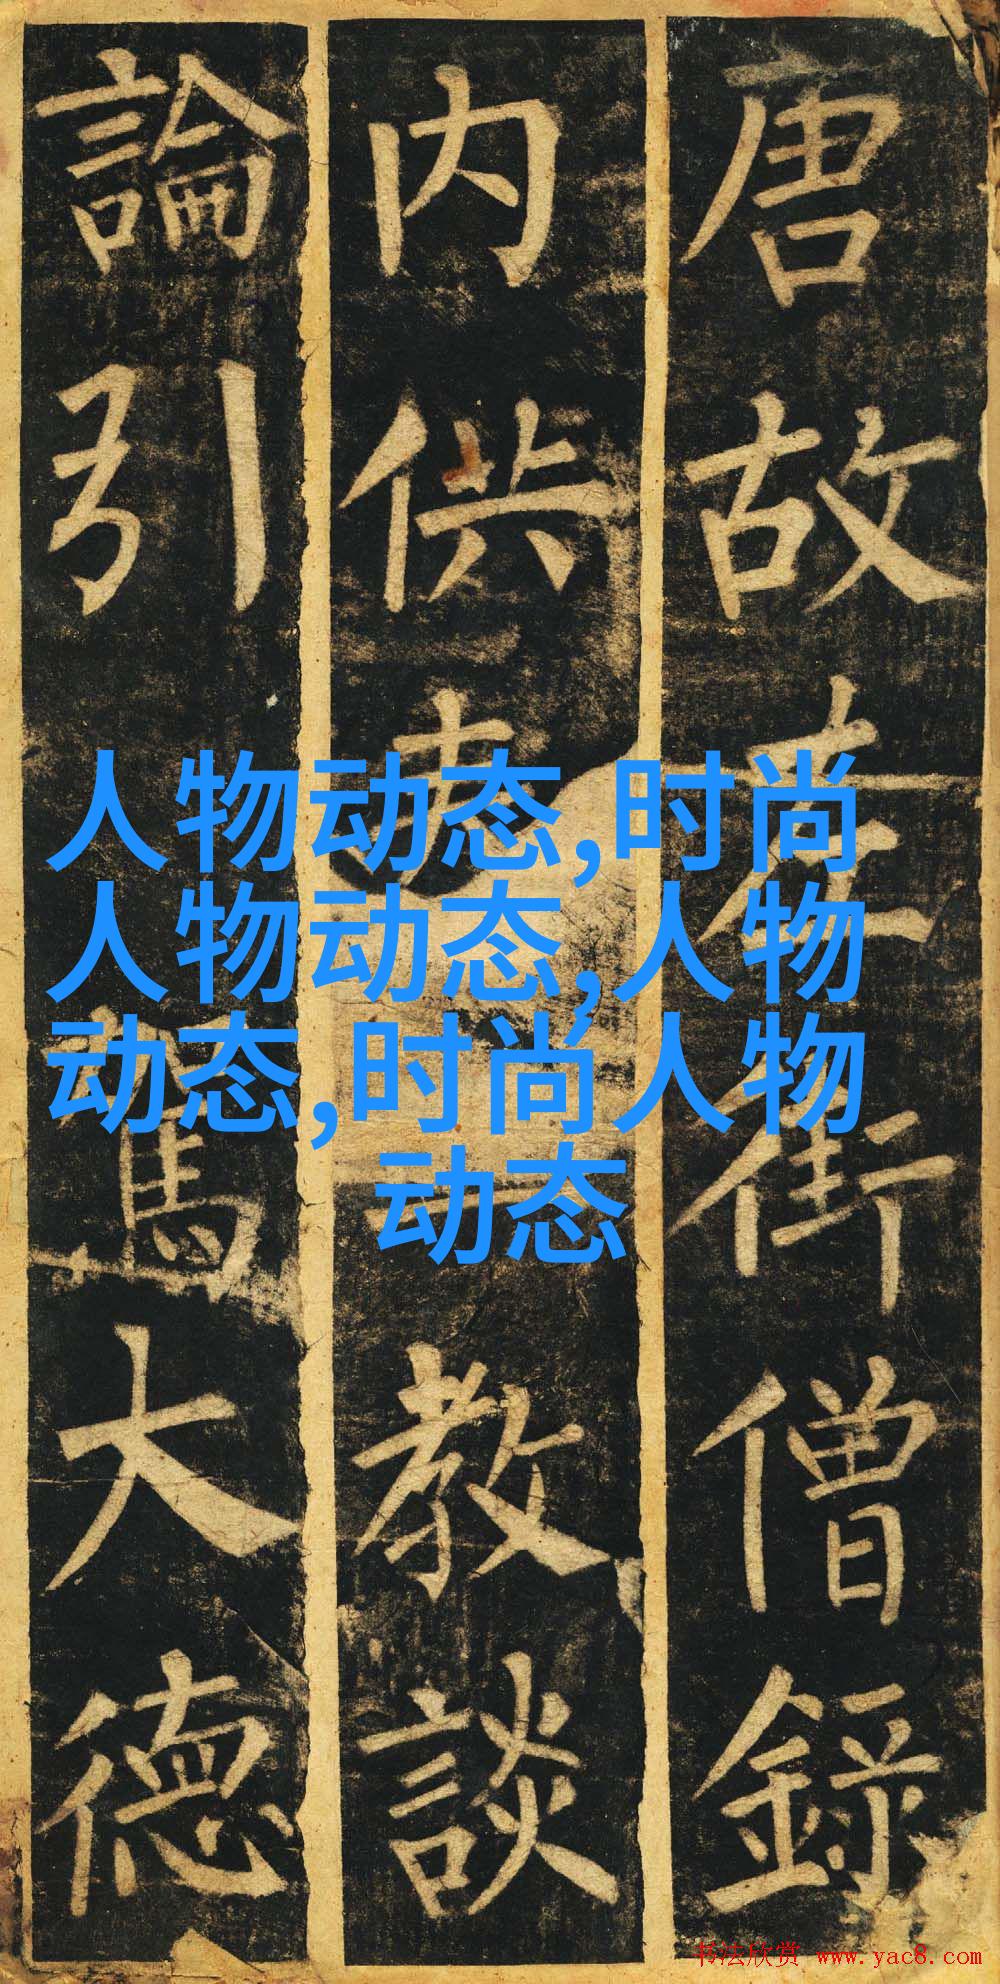 唐故左街僧錄
内供奉三教談
論引駕大德
人物动态,时尚
人物动态,人物
动态,时尚人物
动态
书法欣赏 www.yac8.com